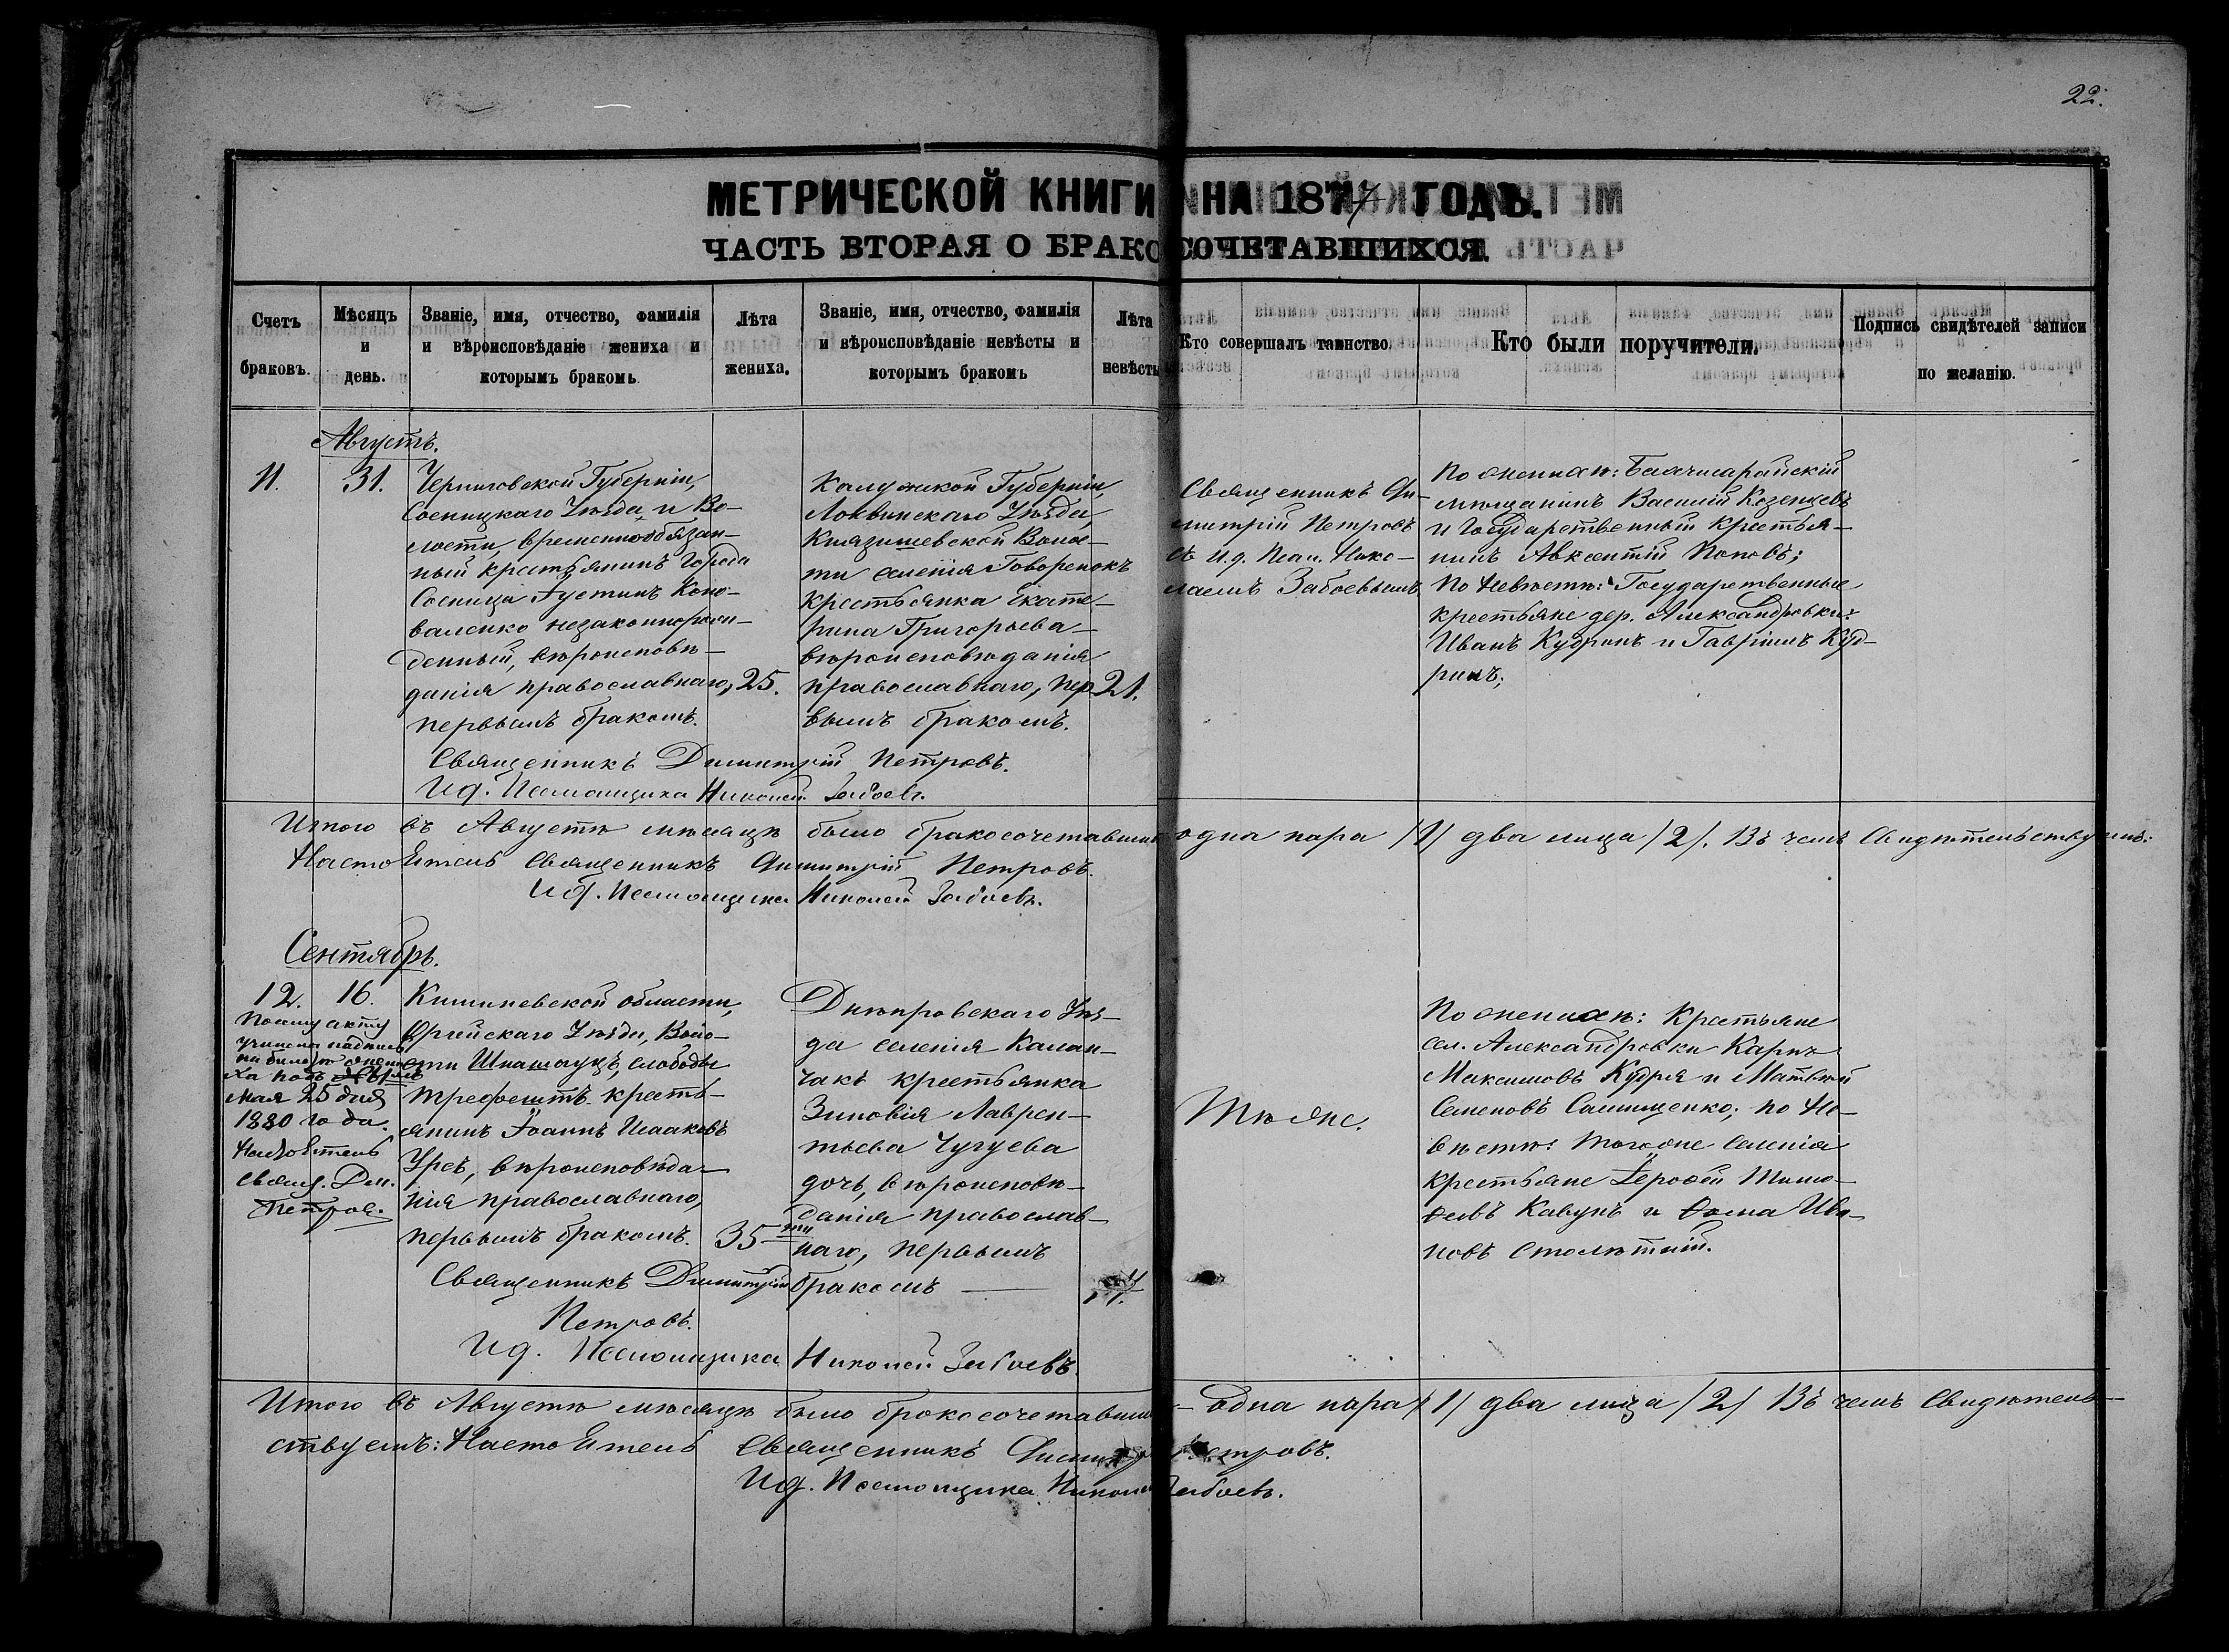 22.
МЕТРИЧЕСКОЙ КНИГИ НА 1877 ГОДЪ.
ЧАСТЬ ВТОРАЯ О БРАКОСОЧЕТАВШИХСЯ.
Счетъ браковъ.
Мѣсяцъ и день.
Званіе, имя, отчество, фамилія и вѣроисповѣданіе жениха и которымъ бракомъ.
Лѣта жениха.
Званіе, имя, отчество, фамилія и вѣроисповѣданіе невѣсты и которымъ бракомъ
Лѣта невѣсты
Кто совершалъ таинство.
Кто были поручители.
Подпись свидѣтелей записи по желанію.
Августъ.
11.
31.
Черниговской Губерніи,
Сосницкаго Уѣзда и Во-
лости, временнообязан-
ный крестьянинъ города
Сосница Іустинъ Коно-
валенко незаконнорож-
денный, вѣроисповѣ-
данія православнаго,
первымъ бракомъ.
25.
Калужской Губерніи,
Лихвинскаго Уѣзда,
Княгищевской Волос-
ти селенія Говоренокъ
крестьянка Екате-
рина Григорьева
вѣроисповѣданія
православнаго, пер-
вымъ бракомъ.
21.
Священникъ Ди-
митрій Петровъ
съ и.д. Псал. Нико-
лаемъ Забоевымъ
По женихѣ: Бахчисарайскій
мѣщанинъ Василій Козенцевъ
и Государственный крестья-
нинъ Авксентій Поповъ;
По невѣстѣ: Государственные
крестьяне дер. Александровки:
Иванъ Кудринъ и Гавріилъ Куд-
ринъ;
Священникъ Димитрій Петровъ.
И.д. Псаломщика Николай Забоевъ.
Итого въ Августѣ мѣсяцѣ было бракосочетавшихся одна пара /1/ два лица /2/. Въ чемъ свидѣтельствуемъ:
Настоятель Священникъ Димитрій Петровъ.
И.д. Псаломщика Николай Забоевъ.
Сентябрь.
12.
16.
По сему акту
учинена надпись
на билетѣ жени-
ха подъ
мая 25 дня
1880 года.
Настоятель
Свящ. Дим.
Петровъ.
Кишиневской области,
Оргѣйскаго Уѣзда, Воло-
сти слободы
крестья-
янинъ Іоаннъ Исааковъ
Урсъ, вѣроисповѣда-
нія православнаго,
первымъ бракомъ.
35-ти
Днѣпровскаго Уѣз-
да селенія Калан-
чакъ крестьянка
Зиновія Лаврен-
тьева Чугуева
дочь, вѣроисповѣ-
данія православ-
наго, первымъ
бракомъ
Тѣ же.
По женихѣ: Крестьяне
сел. Александровки Карпъ
Максимовъ Кудря и Матвѣй
Семеновъ Самищенко; по не-
вѣстѣ: того же селенія
крестьяне Іероѳей Тимо-
ѳеевъ Кавунъ и Ѳома Ива-
новъ Столѣтній.
Священникъ Димитрій
Петровъ.
И.д. Псаломщика Николай Забоевъ.
Итого въ Августѣ мѣсяцѣ было бракосочетавших- одна пара /1/ два лица /2/ Въ чемъ свидѣтель-
ствуемъ: Настоятель Священникъ Димитрій Петровъ.
И.д. Псаломщика Николай Забоевъ.